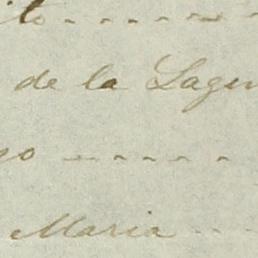 to
de la Lagun
go
Maria